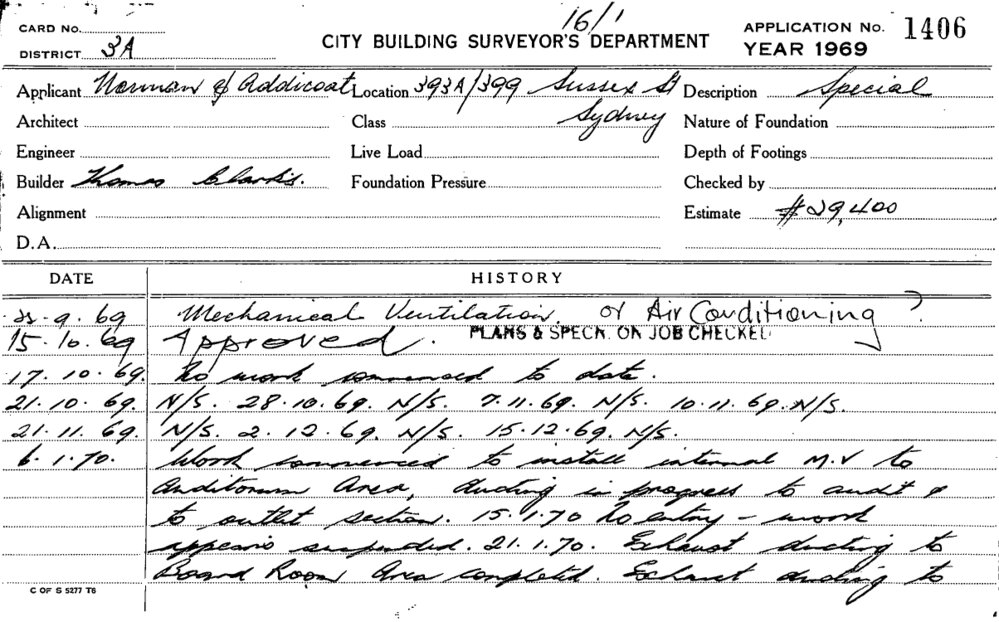 16/1
CARD No.
CITY BUILDING SURVEYOR'S DEPARTMENT
APPLICATION No. 1406
DISTRICT 3A
YEAR 1969
Applicant Norman & Addicoat Location 393A/399 Sussex St Description Special
Architect Class Sydney Nature of Foundation
Engineer Live Load Depth of Footings
Builder Thomas Clarkis. Foundation Pressure Checked by
Alignment Estimate $29,400
D.A.
DATE HISTORY
25.9.69 Mechanical Ventilation. or Air Conditioning ?
15.10.69 Approved. PLANS & SPECN. ON JOB CHECKED
17.10.69. No work commenced to date.
21.10.69. N/S. 28.10.69. N/S. 7.11.69. N/S. 10.11.69. N/S.
21.11.69. N/S. 2.12.69. N/S. 15.12.69. N/S.
6.1.70. Work commenced to install internal M.V to
Auditorum Area, ducting in progress to audit &
to outlet section. 15.1.70 No entry – work
appears suspended. 21.1.70. Exhaust ducting to
Board Room Area completed. Exhaust ducting to
C OF S 5277 T6